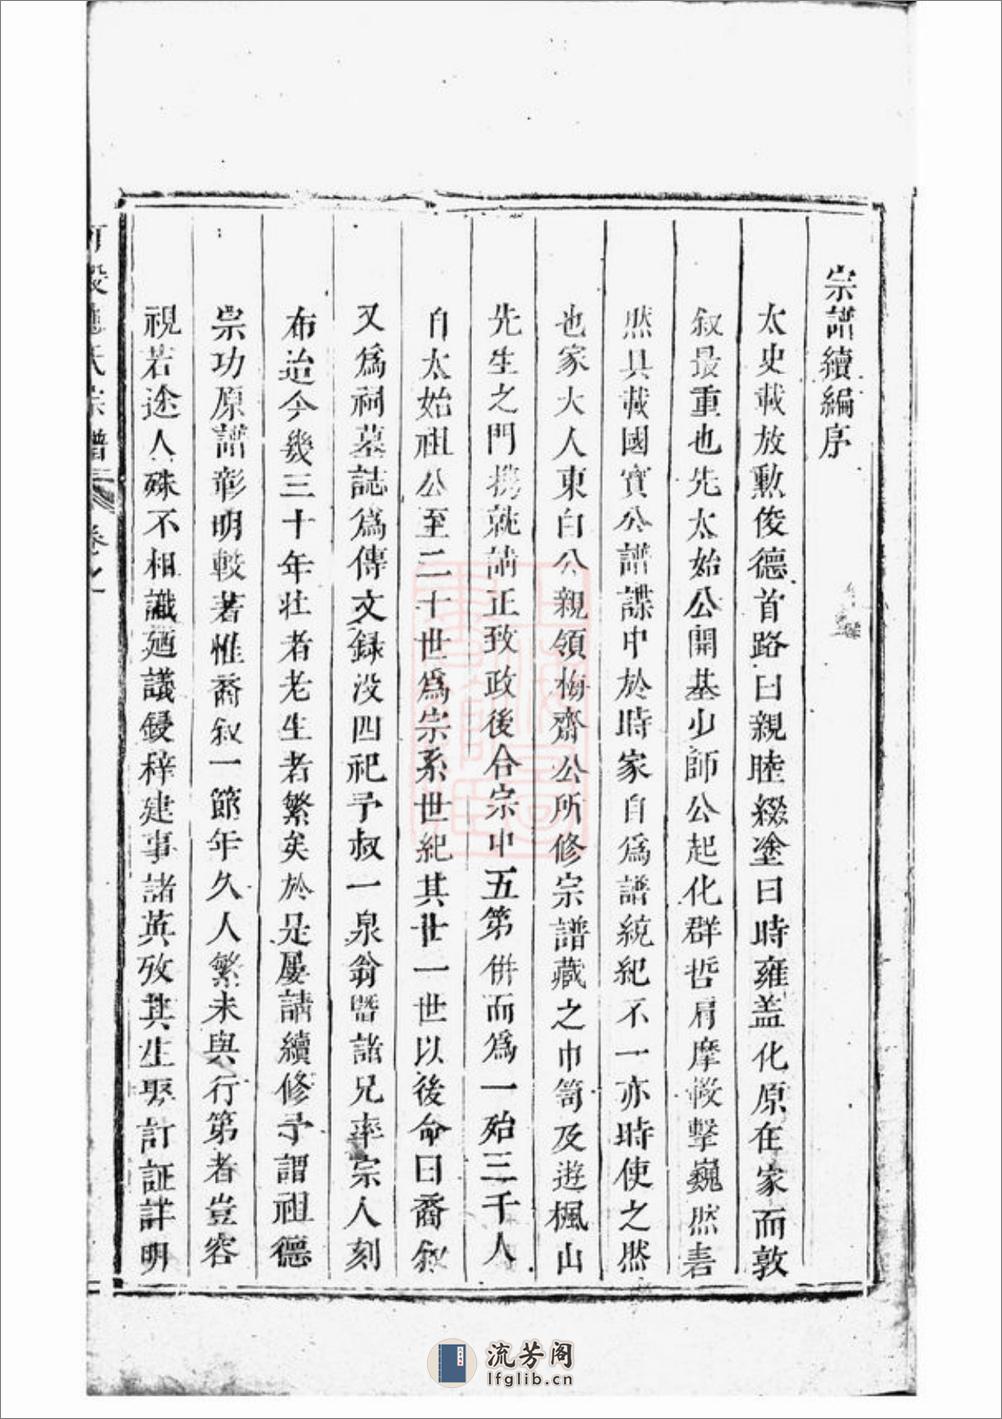 宗譜續編序
太史載放勳俊德首路曰親睦綴塗曰時雍盖化原在家而敦
叙最重也先太始公開基少師公起化群哲肩摩轂擊巍然耆
然具載國寳公譜諜中於時家自爲譜統紀不一亦時使之然
也家大人東白公親領梅齋公所修宗譜藏之巾笥及遊楓山
先生之門携就請正致政後合宗中五第併而爲一殆三千人
自太始祖公至二十世爲宗系世紀其廿一世以後命曰裔叙
又爲祠墓誌爲傳文録没四祀予叔一泉翁暨諸兄率宗人刻
布迨今幾三十年壮者老生者繁矣於是屡請續修予謂祖德
崇功原譜彰明較著惟裔叙一節年久人繁未與行第者豈容
視若途人殊不相識廼議鋟梓建事諸英攷其生娶訂証詳明
氏宗譜 卷之
流芳阁
lfglib.cn